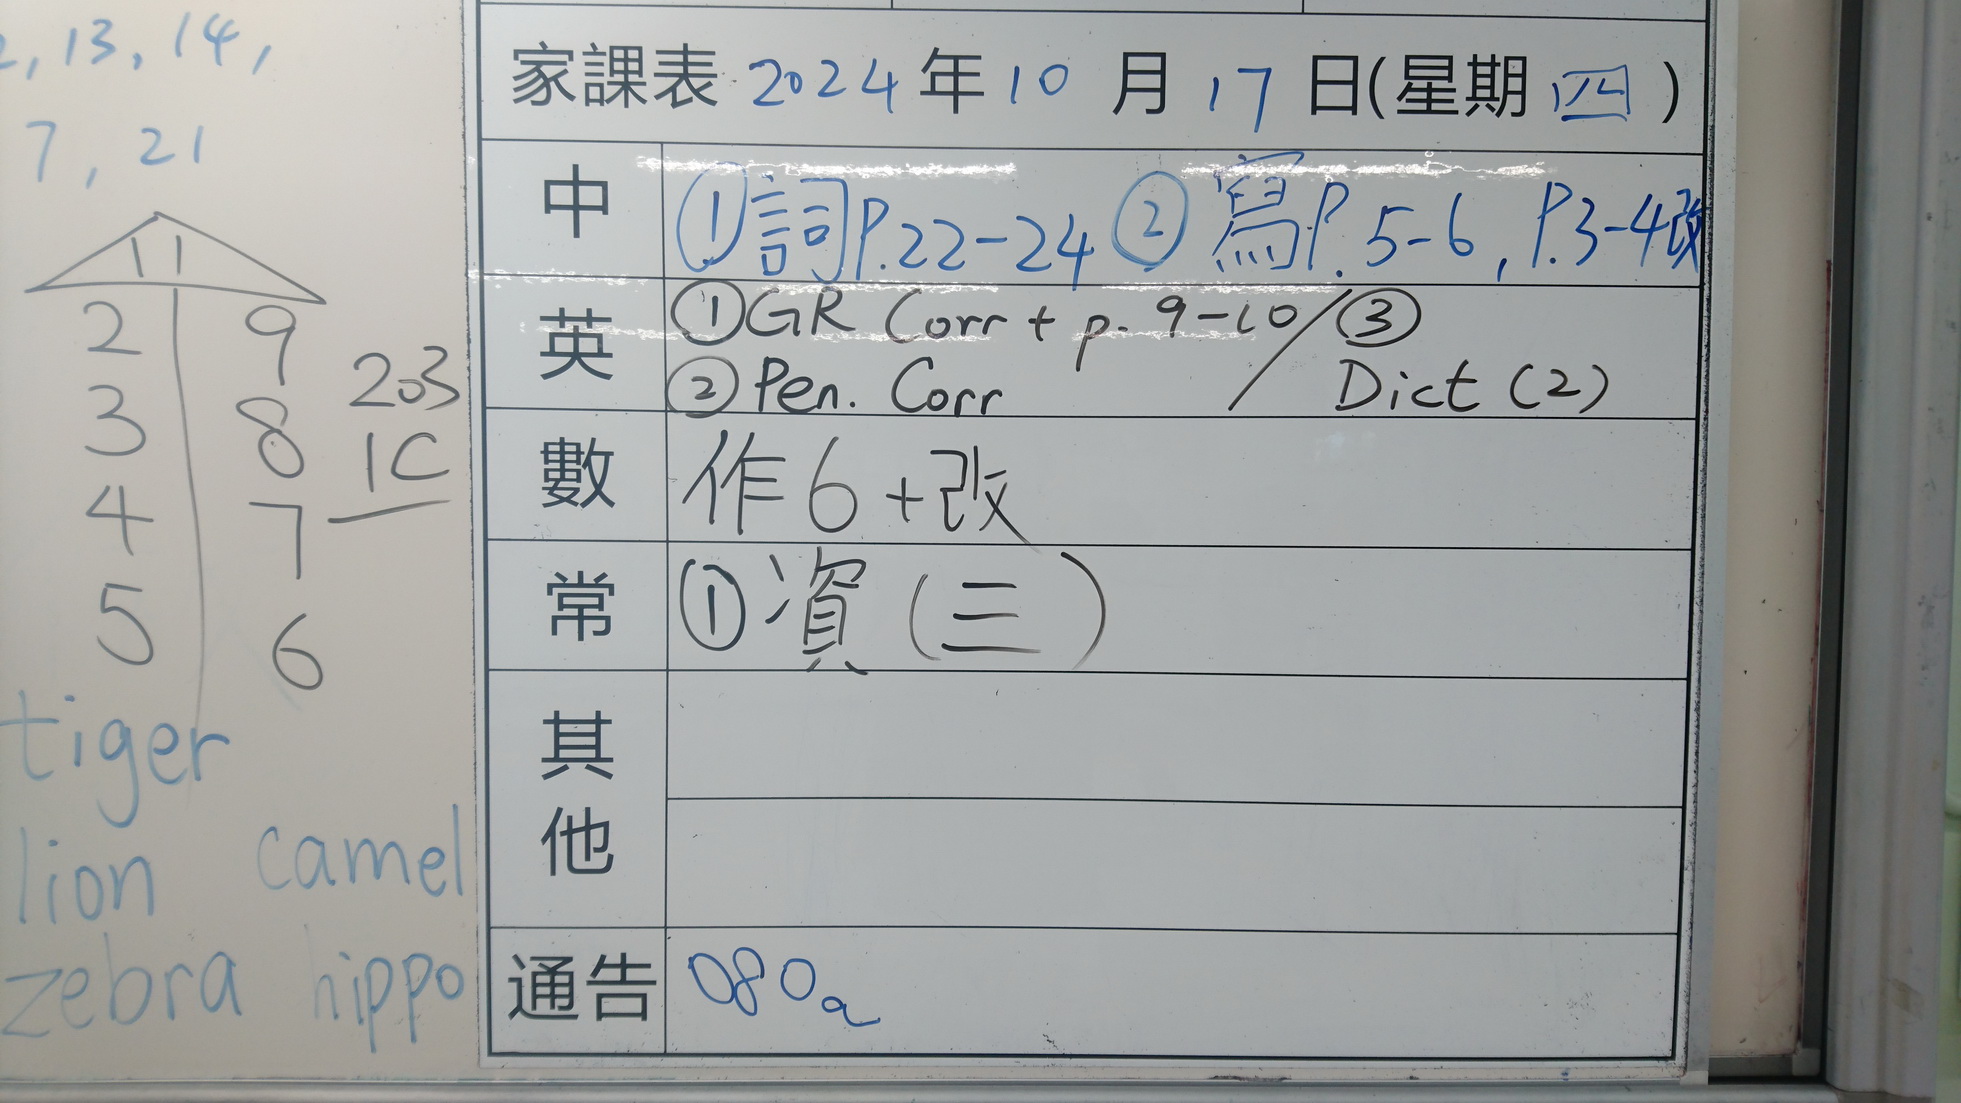 , 13, 14,
7, 21
11
2 9
3 8
4 7
5 6
203
1C
tiger
lion camel
zebra hippo
家課表 2024年10月17日(星期四)
中 ①詞P.22-24 ②寫P.5-6, P.3-4改
英 ①GR Corr + p. 9-10 / ③
②Pen. Corr Dict (2)
數 作6+改
常 ①資(三)
其他
通告 080a